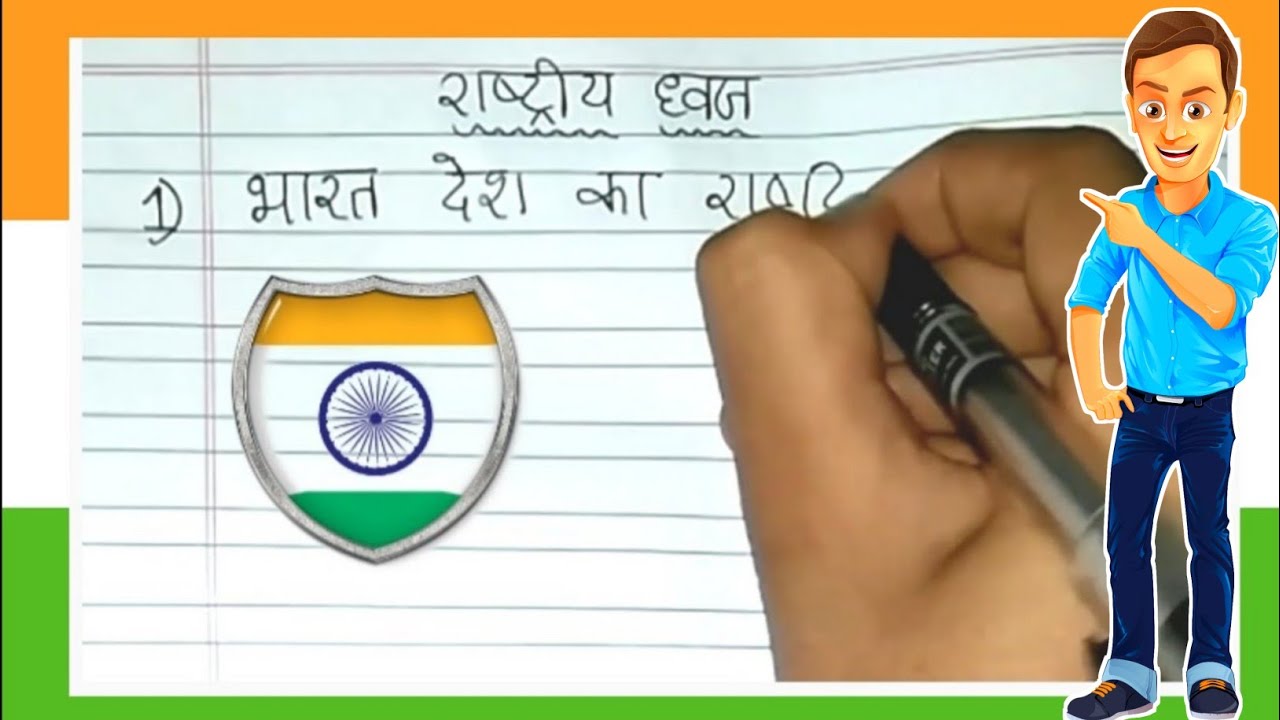 राष्ट्रीय ध्वज
1) भारत देश का